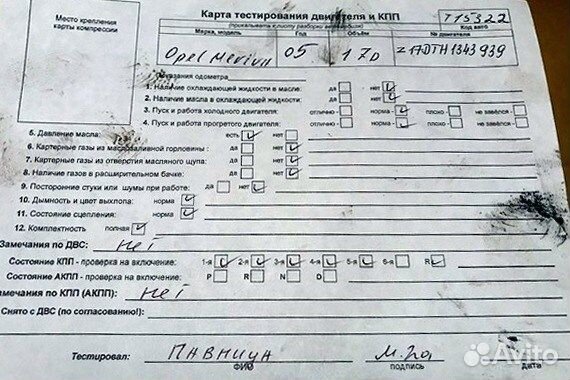 Место крепления карты компрессии
Карта тестирования двигателя и КПП
(прикалывать к листу разборки автомобиля)
Т15322
Код авто
Марка, модель
Год
Объём
№ двигателя
Opel Meriva 05 1.7D Z17DTH1343939
Показания одометра
1. Наличие охлаждающей жидкости в масле: да нет
2. Наличие масла в охлаждающей жидкости: да нет
3. Пуск и работа холодного двигателя: отлично норма плохо не завёлся
4. Пуск и работа прогретого двигателя: отлично норма плохо не завёлся
5. Давление масла: есть нет
6. Картерные газы из маслозаливной горловины: да нет
7. Картерные газы из отверстия масляного щупа: да нет
8. Наличие газов в расширительном бачке: да нет
9. Посторонние стуки или шумы при работе: да нет
10. Дымность и цвет выхлопа: норма
11. Состояние сцепления: норма
12. Комплектность полная
Замечания по ДВС: Нет
Состояние КПП - проверка на включение: 1-я 2-я 3-я 4-я 5-я 6-я R
Состояние АКПП - проверка на включение: P R N D
Замечания по КПП (АКПП): Нет
Снято с ДВС (по согласованию!):
Тестировал:
ФИО
подпись
дата
Avito